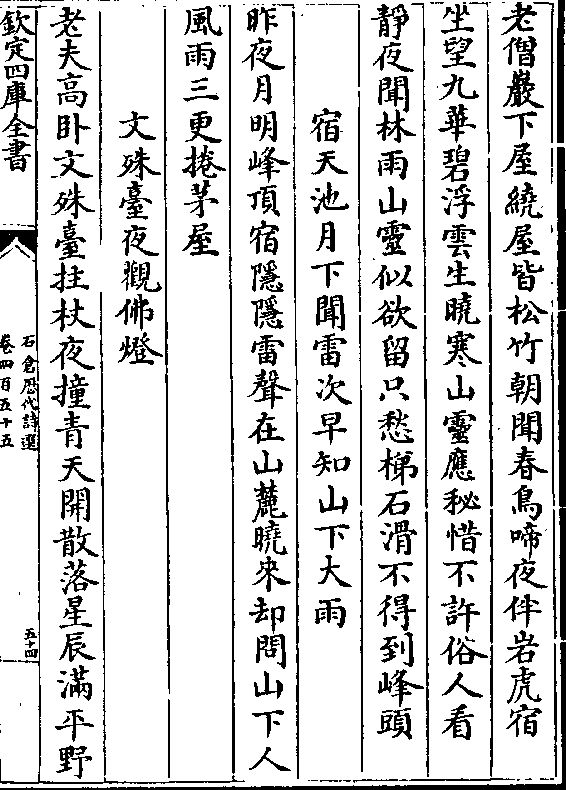 老僧巖下屋繞屋皆松竹朝聞春鳥啼夜伴岩虎宿
坐望九華碧浮雲生曉寒山靈應秘惜不許俗人看
靜夜聞林雨山靈似欲留只愁梯石滑不得到峰頭
宿天池月下聞雷次早知山下大雨
昨夜月明峰頂宿隱隱雷聲在山麓曉來却問山下人
風雨三更捲茅屋
文殊臺夜觀佛燈
老夫高卧文殊臺拄杖夜撞青天開散落星辰滿平野
欽定四庫全書
石倉歷代詩選
卷四百五十五
五十四